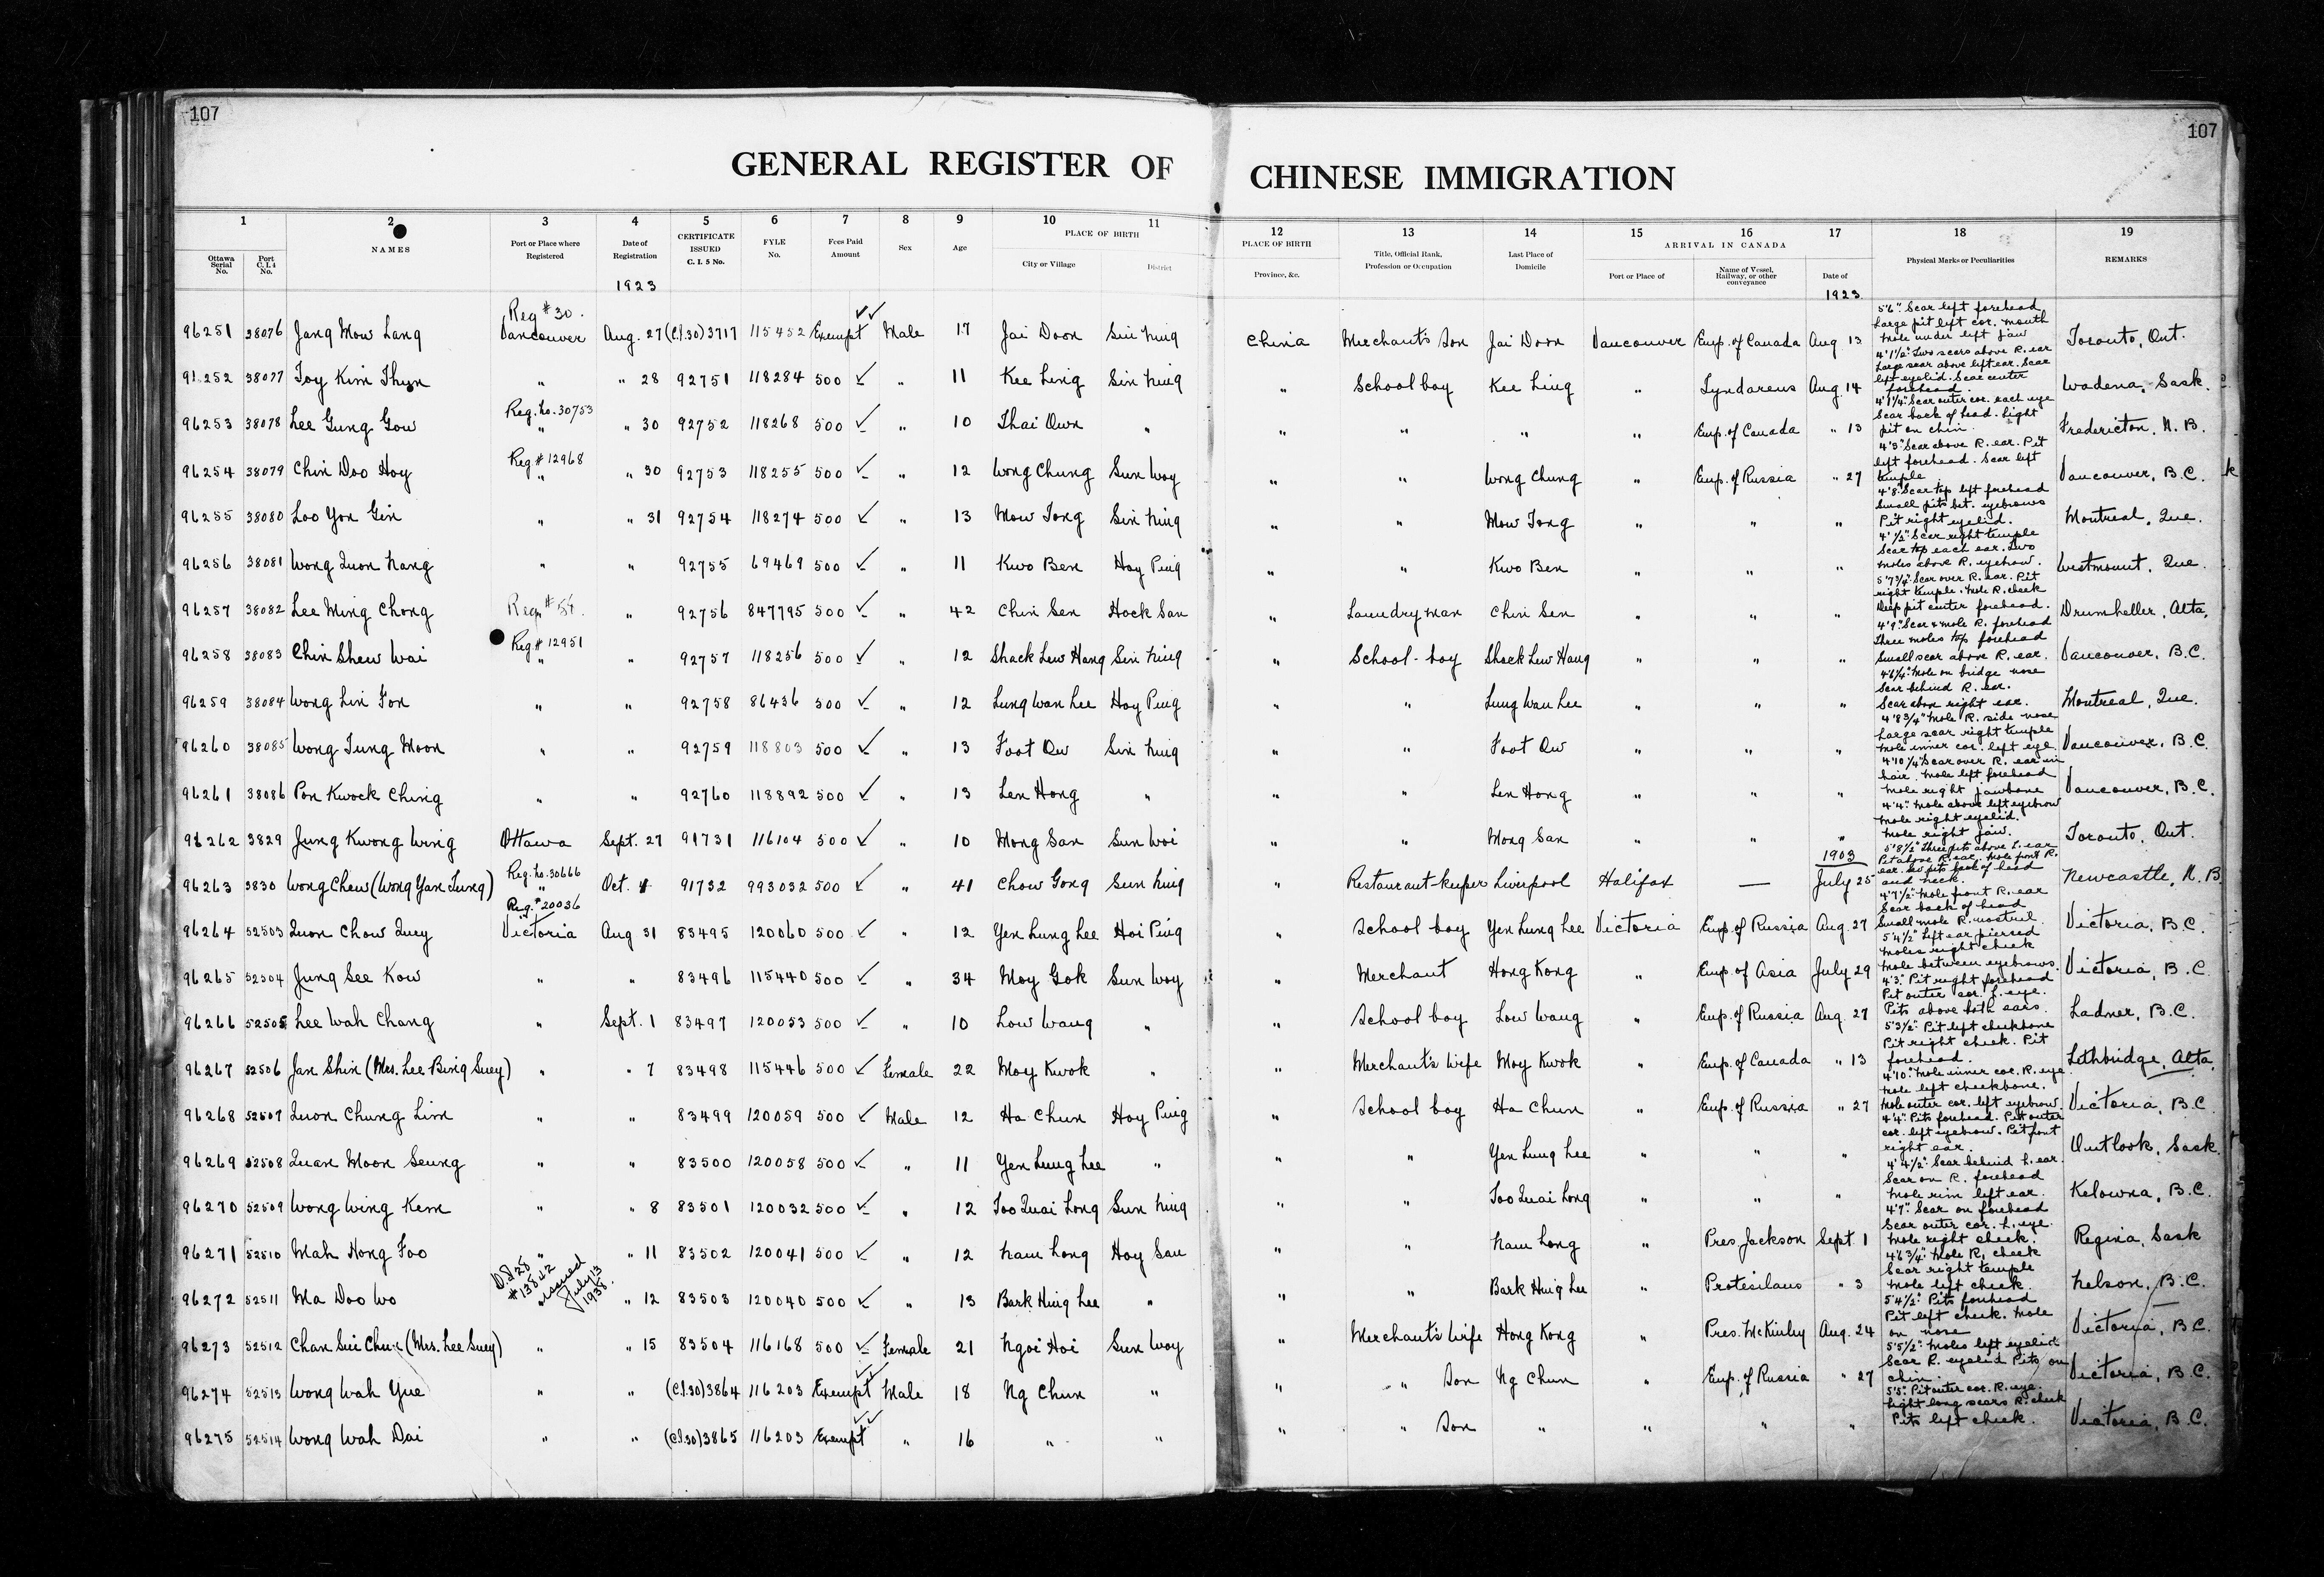 107
107
GENERAL REGISTER OF CHINESE IMMIGRATION
1 2 3 4 5 6 7 8 9 10 11 12 13 14 15 16 17 18 19
PLACE OF BIRTH PLACE OF BIRTH ARRIVAL IN CANADA
Ottawa Serial No. Port C.I.4 No. NAMES Port or Place where Registered Date of Registration CERTIFICATE ISSUED C. I. 5 No. FYLE No. Fees Paid Amount Sex Age City or Village District Province, &c. Title, Official Rank, Profession or Occupation Last Place of Domicile Port or Place of Name of Vessel, Railway, or other conveyance Date of Physical Marks or Peculiarities REMARKS
1923 1923
Reg # 30.
96251 38076 Jang Mow Lang Vancouver Aug. 27 (C.I.30) 3717 115452 Exempt Male 17 Jai Doon Sin Ning China Merchant's Son Jai Doon Vancouver Emp. of Canada Aug 13 5'6". Scar left forehead Large pit left cor. mouth Mole under left jaw Toronto, Ont.
96252 38077 Toy Kim Thun " " 28 92751 118284 500 " 11 Kee Ling Sin Ning " School boy Kee Ling " Tyndareus Aug 14 4'1½". Two scars above R. ear Large scar above left ear. Scar left eyelid. Scar center forehead. Wadena, Sask.
Reg. No. 30753
96253 38078 Lee Gung Gow " " 30 92752 118268 500 " 10 Thai Own " " " " " Emp. of Canada " 13 4'1¼". Scar outer cor. each eye Scar back of head. Light pit on chin. Fredericton, N. B.
Reg # 12968
96254 38079 Chin Doo Hoy " " 30 92753 118255 500 " 12 Wong Chung Sun Woy " " Wong Chung " Emp. of Russia " 27 4'3". Scar above R. ear. Pit left forehead. Scar left temple. Vancouver, B.C.
96255 38080 Loo Yon Gin " " 31 92754 118274 500 " 13 Mow Tong Sin Ning " " Mow Tong " " " 4'8". Scar top left forehead Small pits bet. eyebrows Pit right eyelid. Montreal, Que.
96256 38081 Wong Quon Nang " " 92755 69469 500 " 11 Kwo Ben Hoy Ping " " Kwo Ben " " " 4'½". Scar right temple Scar top each ear. Two moles above R. eyebrow. Westmount, Que.
96257 38082 Lee Ming Chong " 92756 847795 500 " 42 Chin Sen Hock San " Laundryman Chin Sen " " " 5'7¾". Scar over R. ear. Pit right temple. Mole R. cheek Deep pit center forehead. Drumheller, Alta.
Reg # 12951
96258 38083 Chin Shew Wai " " 92757 118256 500 " 12 Shack Lew Hang Sin Ning " School-boy Shack Lew Hang " " " 4'9". Scar & mole R. forehead Three moles top forehead Small scar above R. ear. Vancouver, B.C.
96259 38084 Wong Lin Fon " " 92758 86436 500 " 12 Lung Wan Lee Hoy Ping " " Lung Wan Lee " " " 4'6¼". Mole on bridge nose Scar behind R. ear. Scar above right ear. Montreal, Que.
96260 38085 Wong Tung Moon " " 92759 118803 500 " 13 Foot Ow Sin Ning " " Foot Ow " " " 4'8¾" Mole R. side nose Large scar right temple Mole inner cor. left eye. Vancouver, B.C.
96261 38086 Pon Kwock Ching " " 92760 118892 500 " 13 Len Hong " " " Len Hong " " " 4'10¼" Scar over R. ear in hair. Mole left forehead Mole right jawbone Vancouver, B.C.
96262 3829 Jung Kwong Wing Ottawa Sept. 27 91731 116104 500 " 10 Mong San Sun Woi " " Mong San " " " 4'4". Mole above left eyebrow Mole right eyelid. Mole right jaw. Toronto, Ont.
Reg. No. 30666 1903
96263 3830 Wong Chew (Wong Yan Tung) " Oct. 1 91732 993032 500 " 41 Chow Gong Sun Ning " Restaurant keeper Liverpool Halifax — July 25 5'8½" Three pits above L. ear Pit above R. ear. Mole front R. ear. and neck. Newcastle, N. B.
Reg. # 20036
96264 52503 Quon Chow Quey Victoria Aug 31 83495 120060 500 " 12 Yen Lung Lee Hoi Ping " School boy Yen Lung Lee Victoria Emp. of Russia Aug. 27 4'7½". Mole front R. ear Scar back of head Small mole R. nostril. Victoria, B.C.
96265 52504 Jung See Kow " " 83496 115440 500 " 34 Moy Gok Sun Woy " Merchant Hong Kong " Emp. of Asia July 29 5'4½" Left ear pierced Moles right cheek Mole between eyebrows. Victoria, B.C.
96266 52505 Lee Wah Chang " Sept. 1 83497 120053 500 " 10 Low Wang " " School boy Low Wang " Emp. of Russia Aug. 27 4'3". Pit right forehead Pit outer cor. L. eye. Pits above both ears. Ladner, B.C.
96267 52506 Jan Shin (Mrs. Lee Bing Suey) " " 7 83498 115446 500 Female 22 Moy Kwok " " Merchant's Wife Moy Kwok " Emp. of Canada " 13 5'3½". Pit left cheekbone Pit right cheek. Pit forehead. Lethbridge, Alta.
96268 52507 Quon Chung Lim " " 83499 120059 500 Male 12 Ha Chun Hoy Ping " School boy Ha Chun " Emp. of Russia " 27 4'10". Mole inner cor. R. eye Mole left cheekbone. Mole outer cor. left eyebrow. Victoria, B.C.
96269 52508 Quan Moon Seung " " 83500 120058 500 " 11 Yen Lung Lee " " " Yen Lung Lee " " " 4'4". Pits forehead. Pit outer cor. left eyebrow. Pit front right ear. Outlook, Sask.
96270 52509 Wong Wing Kem " " 8 83501 120032 500 " 12 Too Quai Long Sun Ning " " Too Quai Long " " " 4'4½". Scar behind L. ear. Scar on R. forehead Mole rim left ear. Kelowna, B.C.
96271 52510 Mah Hong Foo " " 11 83502 120041 500 " 12 Nam Long Hoy San " " Nam Long " Pres Jackson Sept. 1 4'7". Scar on forehead Scar outer cor. L. eye. Mole right cheek. Regina, Sask
#13842 issued July 13 1938.
96272 52511 Ma Doo Wo " 12 83503 120040 500 " 13 Bark Hing Lee " " " Bark Hing Lee " Protesilaus " 3 4'6¾". Mole R. cheek Scar right temple Mole left cheek. Nelson, B.C.
96273 52512 Chan Sui Chun (Mrs. Lee Suey) " " 15 83504 116168 500 Female 21 Ngoi Hoi Sun Woy " Merchant's Wife Hong Kong " Pres. McKinley Aug. 24 5'4½". Pits forehead Pit left cheek. Mole on nose Victoria, B.C.
96274 52513 Wong Wah Yue " " (C.I.30) 3864 116203 Exempt Male 18 Ng Chun " " " Son Ng Chun " Emp. of Russia " 27 5'5½". Moles left eyelid Scar R. eyelid Pits on chin. Victoria, B.C.
96275 52514 Wong Wah Dai " " (C.I.30) 3865 116203 Exempt " 16 " " " " Son " " " " 5'5". Pit outer cor. R. eye. Light long scars R. cheek Pits left cheek. Victoria, B.C.